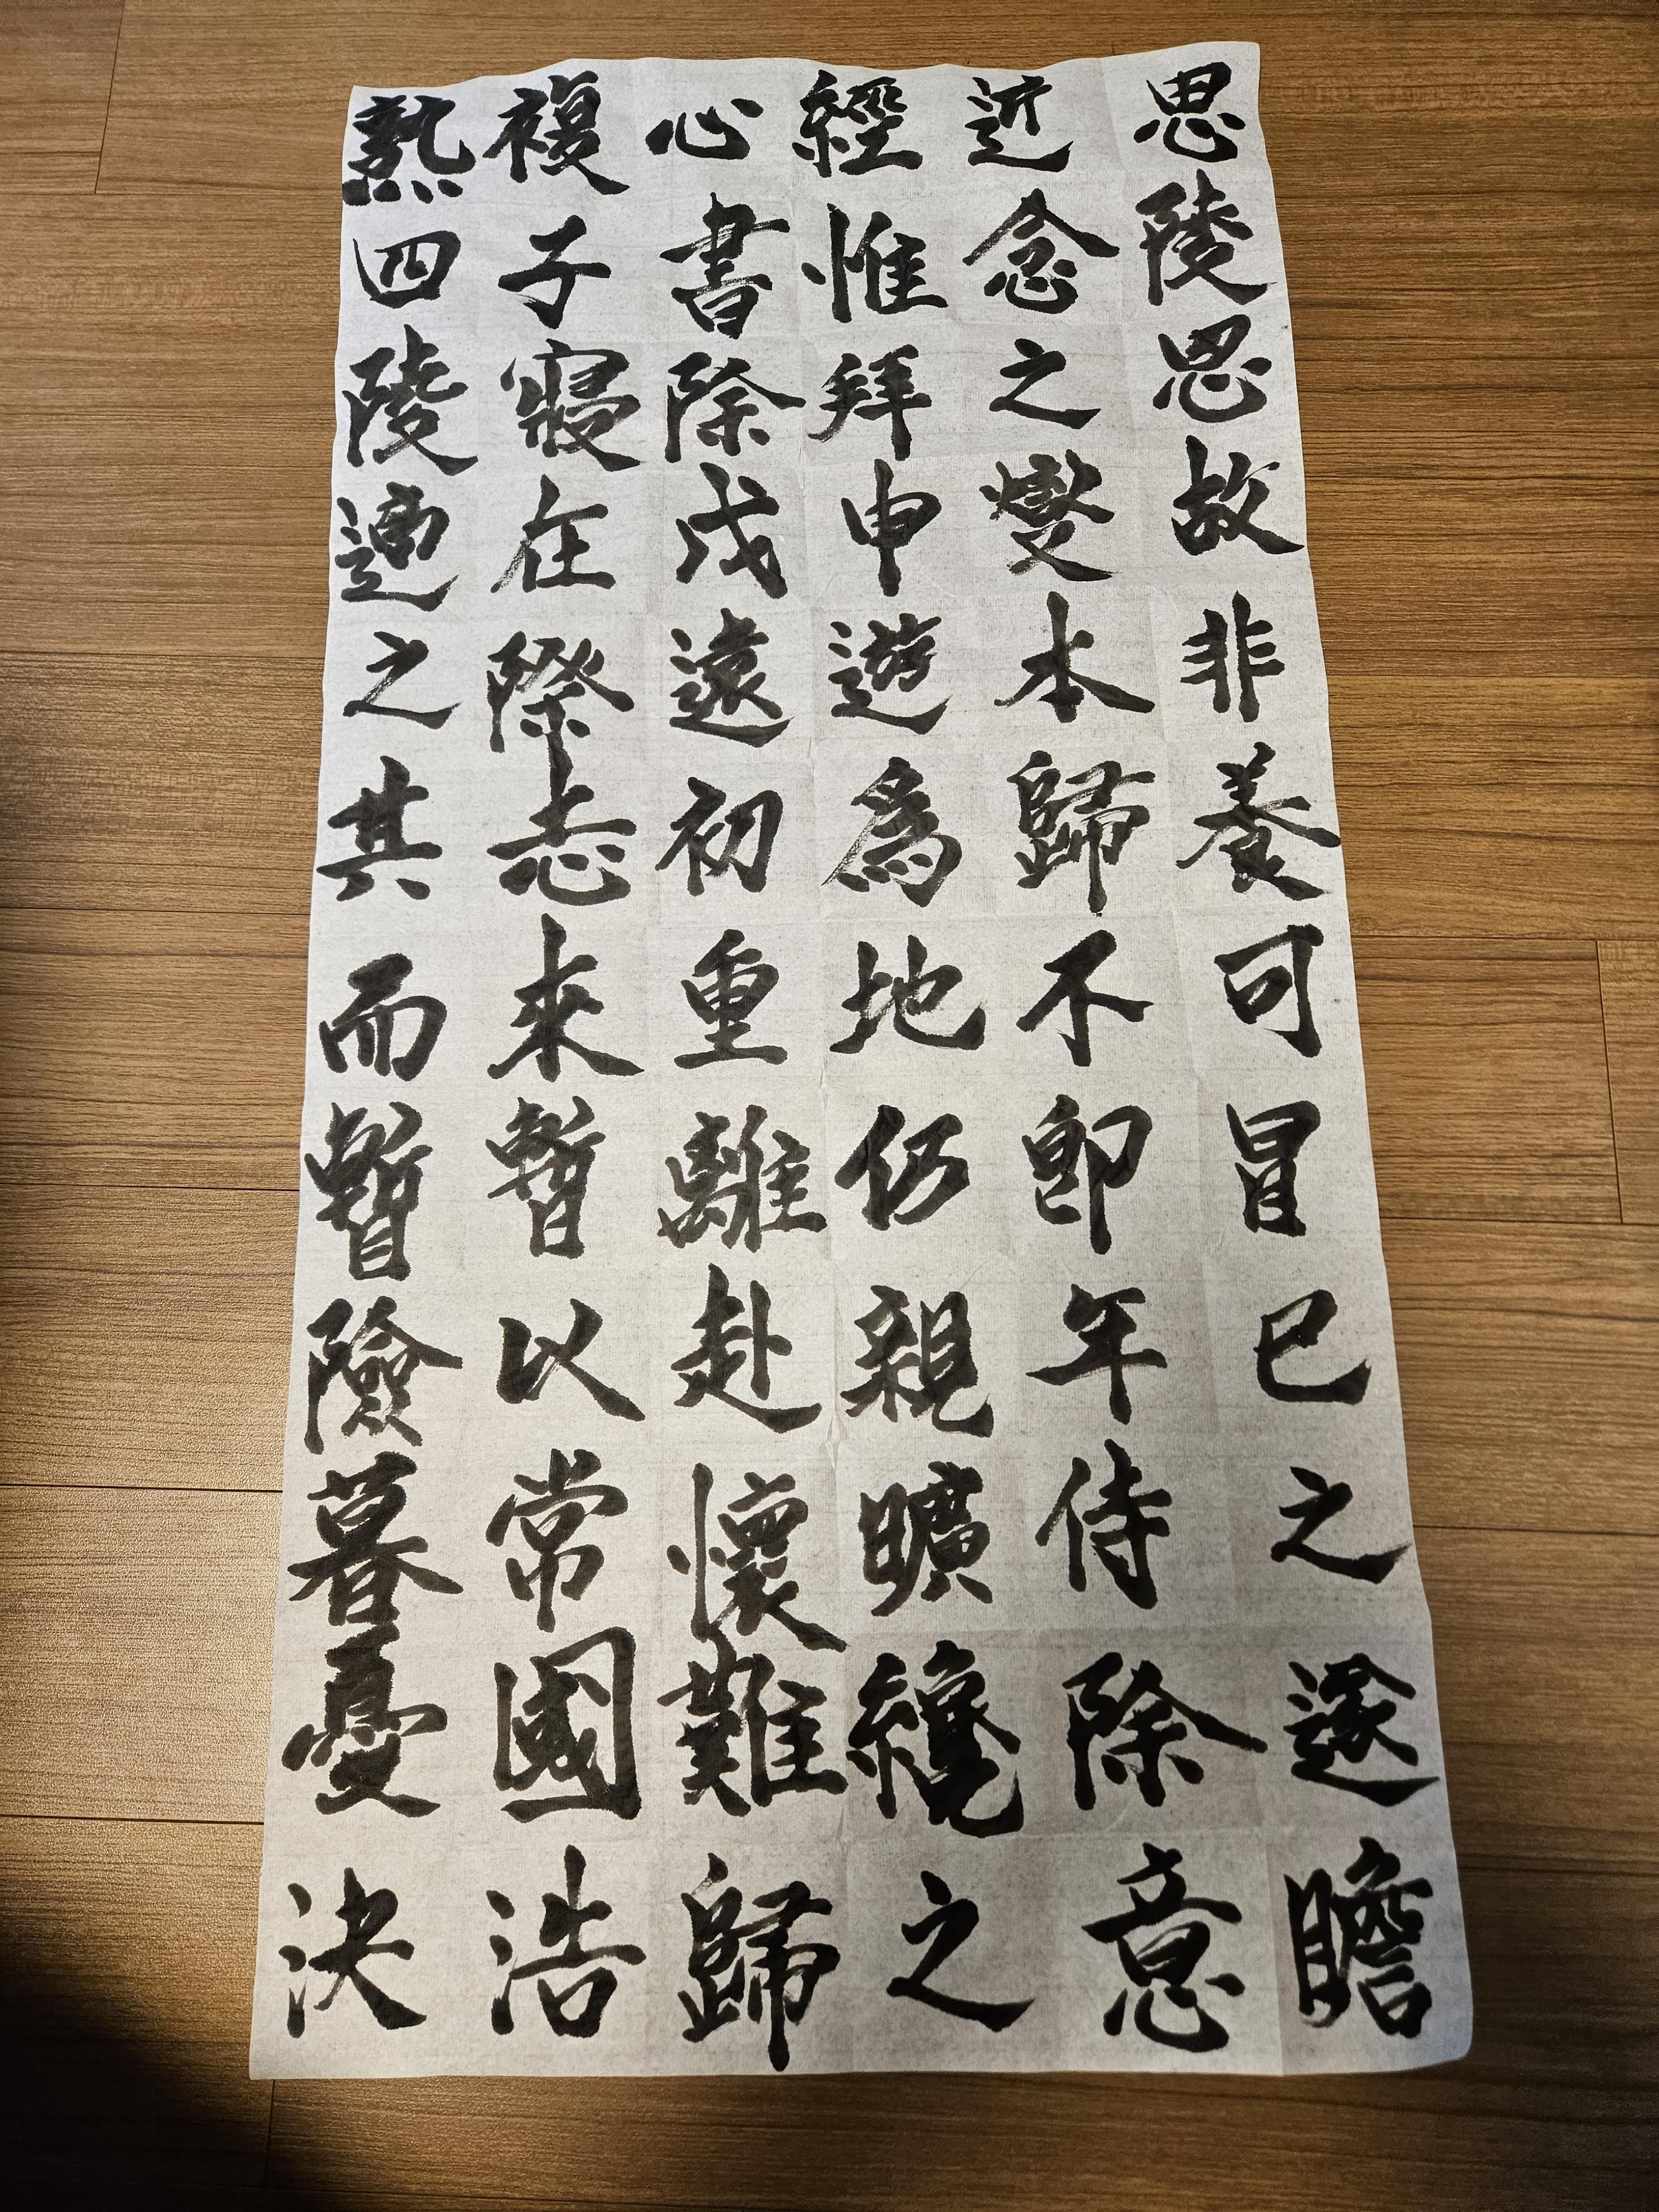 思陵恩故非養可冒已之遂瞻
近念之變本歸不即年侍除意
經惟拜申遊爲地仍親曠纔之
心書除戊遠初重離赴懷難歸
複子寢在際志來暫以常國浩
熟四陵適之其而暫險暮憂決